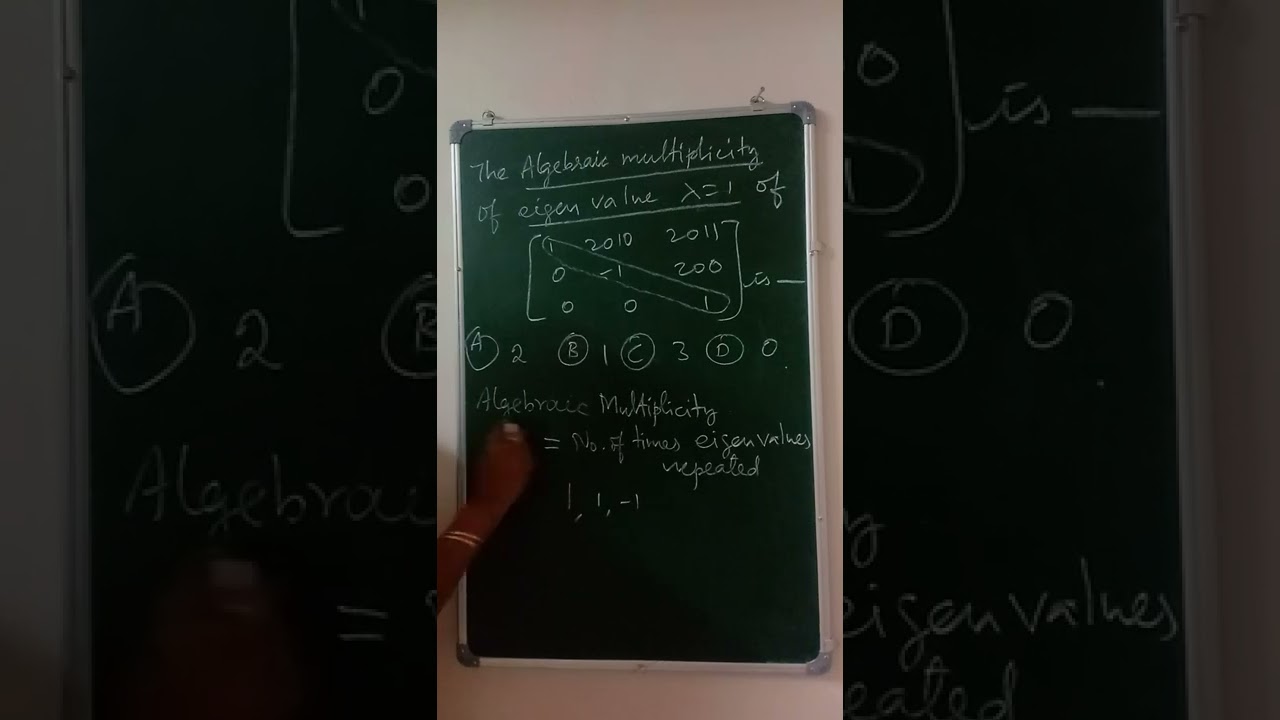 The Algebraic multiplicity
of eigen value λ=1 of
1 2010 2011
0 -1 200 is —
0 0 1
A 2 B 1 C 3 D 0.
Algebraic Multiplicity
= No. of times eigenvalues
repeated
1, 1, -1